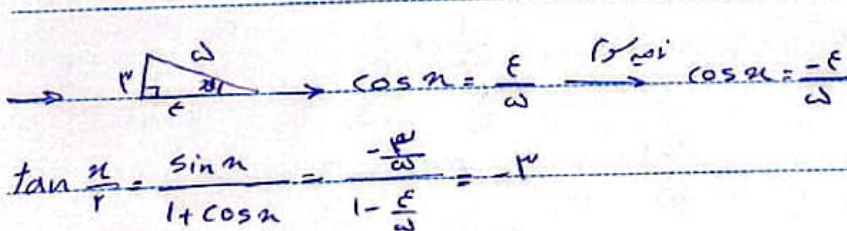 → ۳ ۵ ۴ x → cos x = ۴/۵ → ناحیه سوم cos x = -۴/۵
tan x/۲ = sin x / (1 + cos x) = (-۳/۵) / (1 - ۴/۵) = -۳